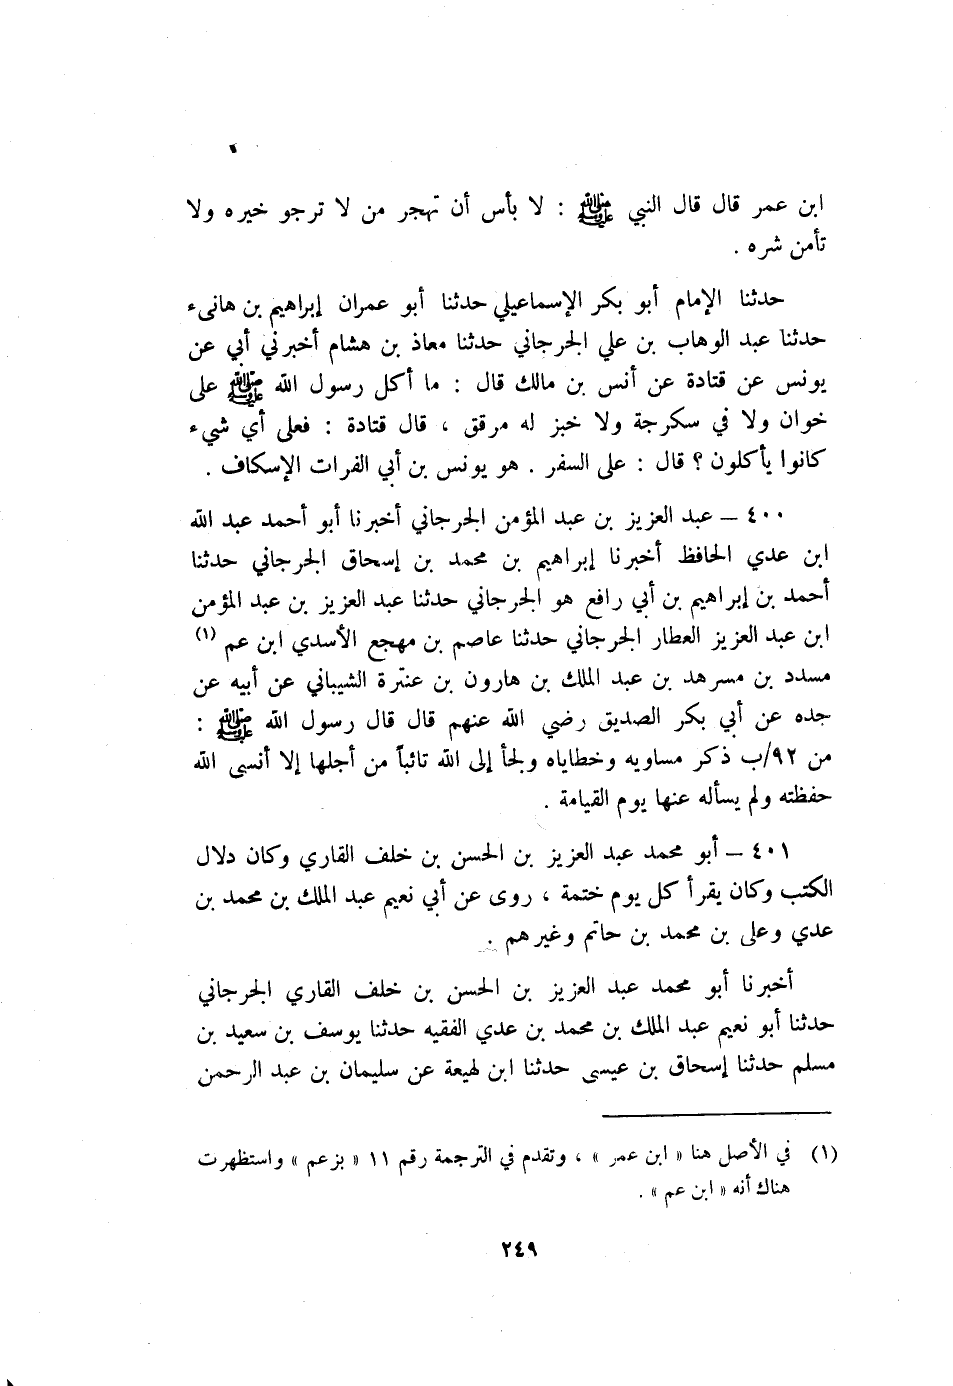 ابن عمر قال قال النبي ﷺ : لا بأس أن تهجر من لا ترجو خيره ولا
تأمن شره .
حدثنا الإمام أبو بكر الإسماعيلي حدثنا أبو عمران إبراهيم بن هانىء
حدثنا عبد الوهاب بن علي الجرجاني حدثنا معاذ بن هشام أخبرني أبي عن
يونس عن قتادة عن أنس بن مالك قال : ما أكل رسول الله ﷺ على
خوان ولا في سكرجة ولا خبز له مرقق ، قال قتادة : فعلى أي شيء
كانوا يأكلون ؟ قال : على السفر . هو يونس بن أبي الفرات الإسكاف .
٤٠٠ – عبد العزيز بن عبد المؤمن الجرجاني أخبرنا أبو أحمد عبد الله
ابن عدي الحافظ أخبرنا إبراهيم بن محمد بن إسحاق الجرجاني حدثنا
أحمد بن إبراهيم بن أبي رافع هو الجرجاني حدثنا عبد العزيز بن عبد المؤمن
ابن عبد العزيز العطار الجرجاني حدثنا عاصم بن مهجع الأسدي ابن عم (١)
مسدد بن مسرهد بن عبد الملك بن هارون بن عنترة الشيباني عن أبيه عن
جده عن أبي بكر الصديق رضي الله عنهم قال قال رسول الله ﷺ :
من ٩٢/ب ذكر مساويه وخطاياه ولجأ إلى الله تائباً من أجلها إلا أنسى الله
حفظته ولم يسأله عنها يوم القيامة .
٤٠١ – أبو محمد عبد العزيز بن الحسن بن خلف القاري وكان دلال
الكتب وكان يقرأ كل يوم ختمة ، روى عن أبي نعيم عبد الملك بن محمد بن
عدي وعلى بن محمد بن حاتم وغيرهم .
أخبرنا أبو محمد عبد العزيز بن الحسن بن خلف القاري الجرجاني
حدثنا أبو نعيم عبد الملك بن محمد بن عدي الفقيه حدثنا يوسف بن سعيد بن
مسلم حدثنا إسحاق بن عيسى حدثنا ابن لهيعة عن سليمان بن عبد الرحمن
(١) في الأصل هنا « ابن عمر » ، وتقدم في الترجمة رقم ١١ « بزعم » واستظهرت
هناك أنه « ابن عم » .
٢٤٩